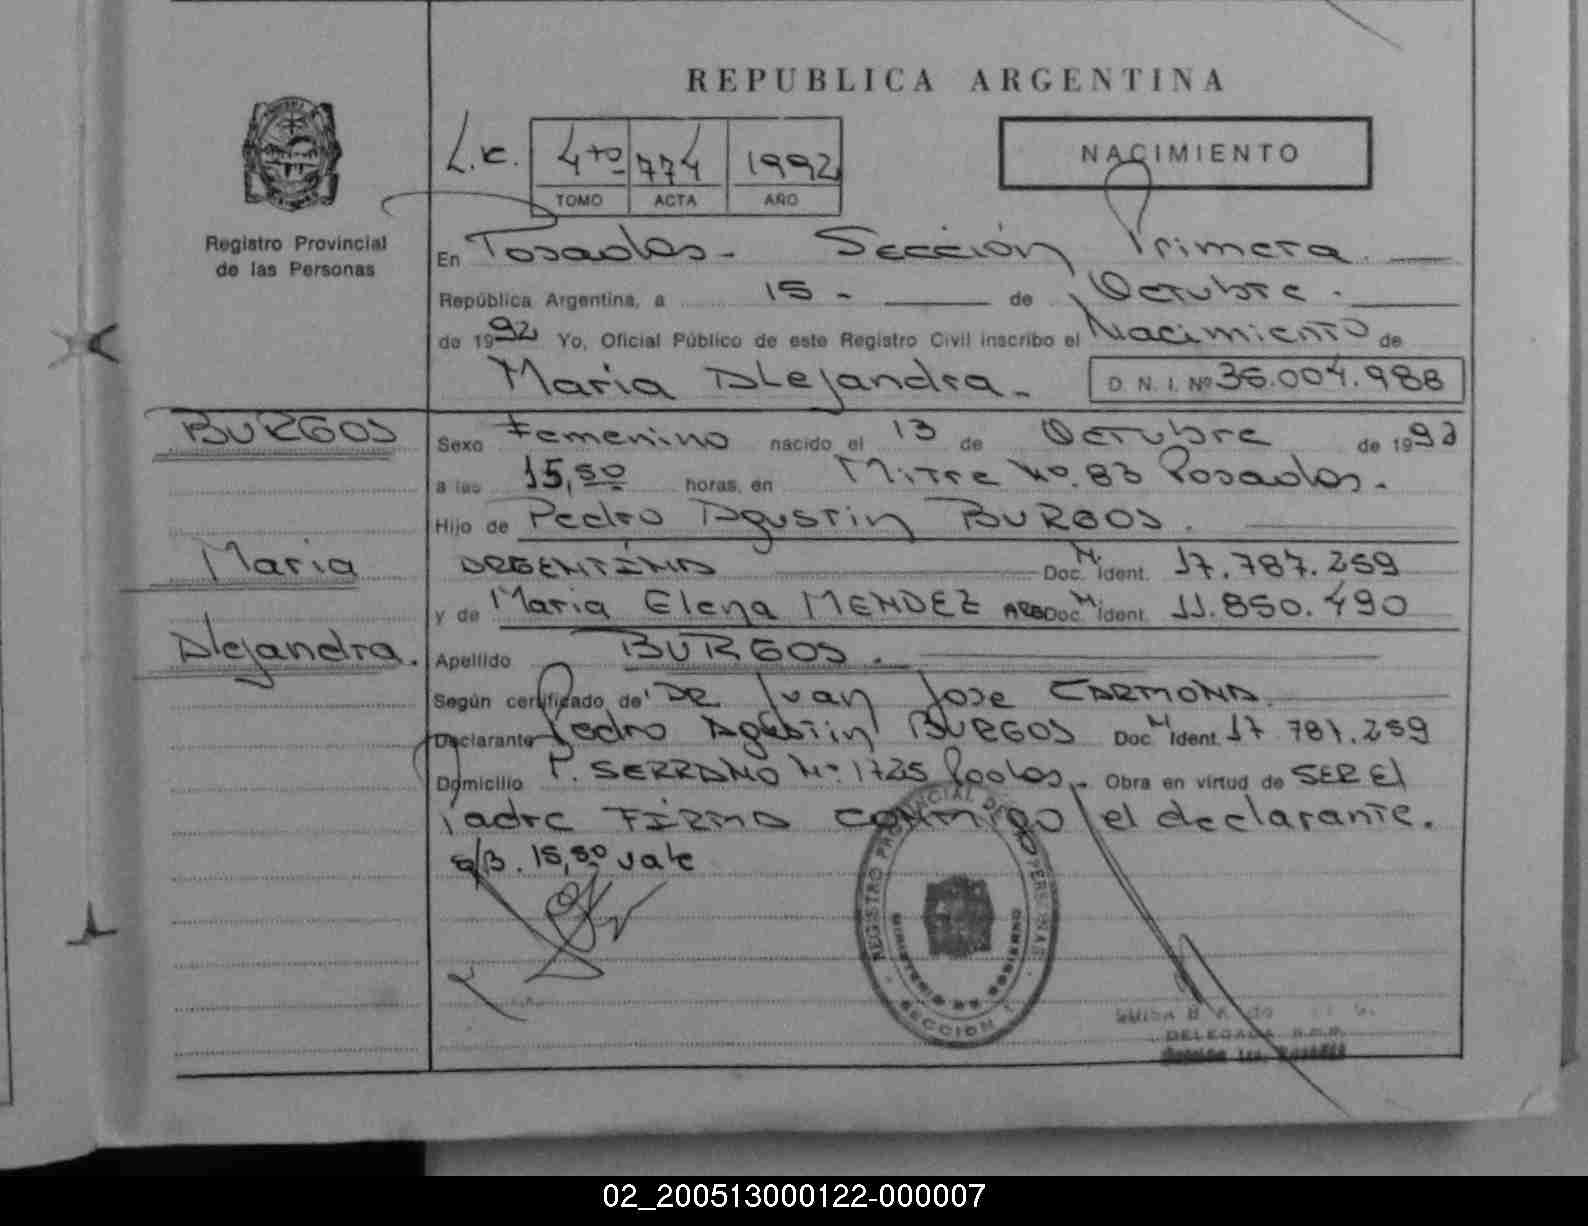 REPUBLICA ARGENTINA
L.c. 4to 774 1992
TOMO ACTA AÑO
NACIMIENTO
Registro Provincial
de las Personas
En Posadas - Sección Primera
República Argentina, a 15 - de Octubre -
de 1992 Yo, Oficial Público de este Registro Civil inscribo el Nacimiento de
Maria Alejandra - D. N. I. Nº 36.004.988
BURGOS
Maria
Alejandra.
Sexo Femenino nacido el 13 de Octubre de 1992
a las 15,50 horas, en Mitre No. 83 Posadas -
Hijo de Pedro Agustin BURGOS.
ARGENTINA Doc. M. Ident. 17.787.259
y de Maria Elena MENDEZ ARG Doc. M. Ident. 11.850.490
Apellido BURGOS.
Según certificado de DR Juan Jose CARMONA
Declarante Pedro Agustin BURGOS Doc. M Ident. 17 787.259
Domicilio P. SERRANO Nº 1725 Pdas. Obra en virtud de SER El
Padre FIRMA conmigo el declarante.
S/B. 15,50 vale
REGISTRO PROVINCIAL DE PERSONAS
MINISTERIO DE GOBIERNO
SECCION 1
DELEGADA R.P.P.
02_200513000122-000007